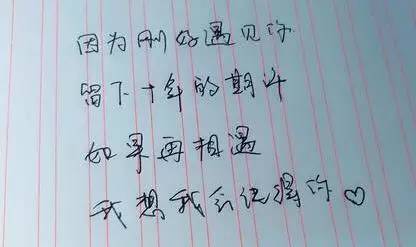 因为刚好遇见你
留下十年的期许
如果再相遇
我想我会记得你♡